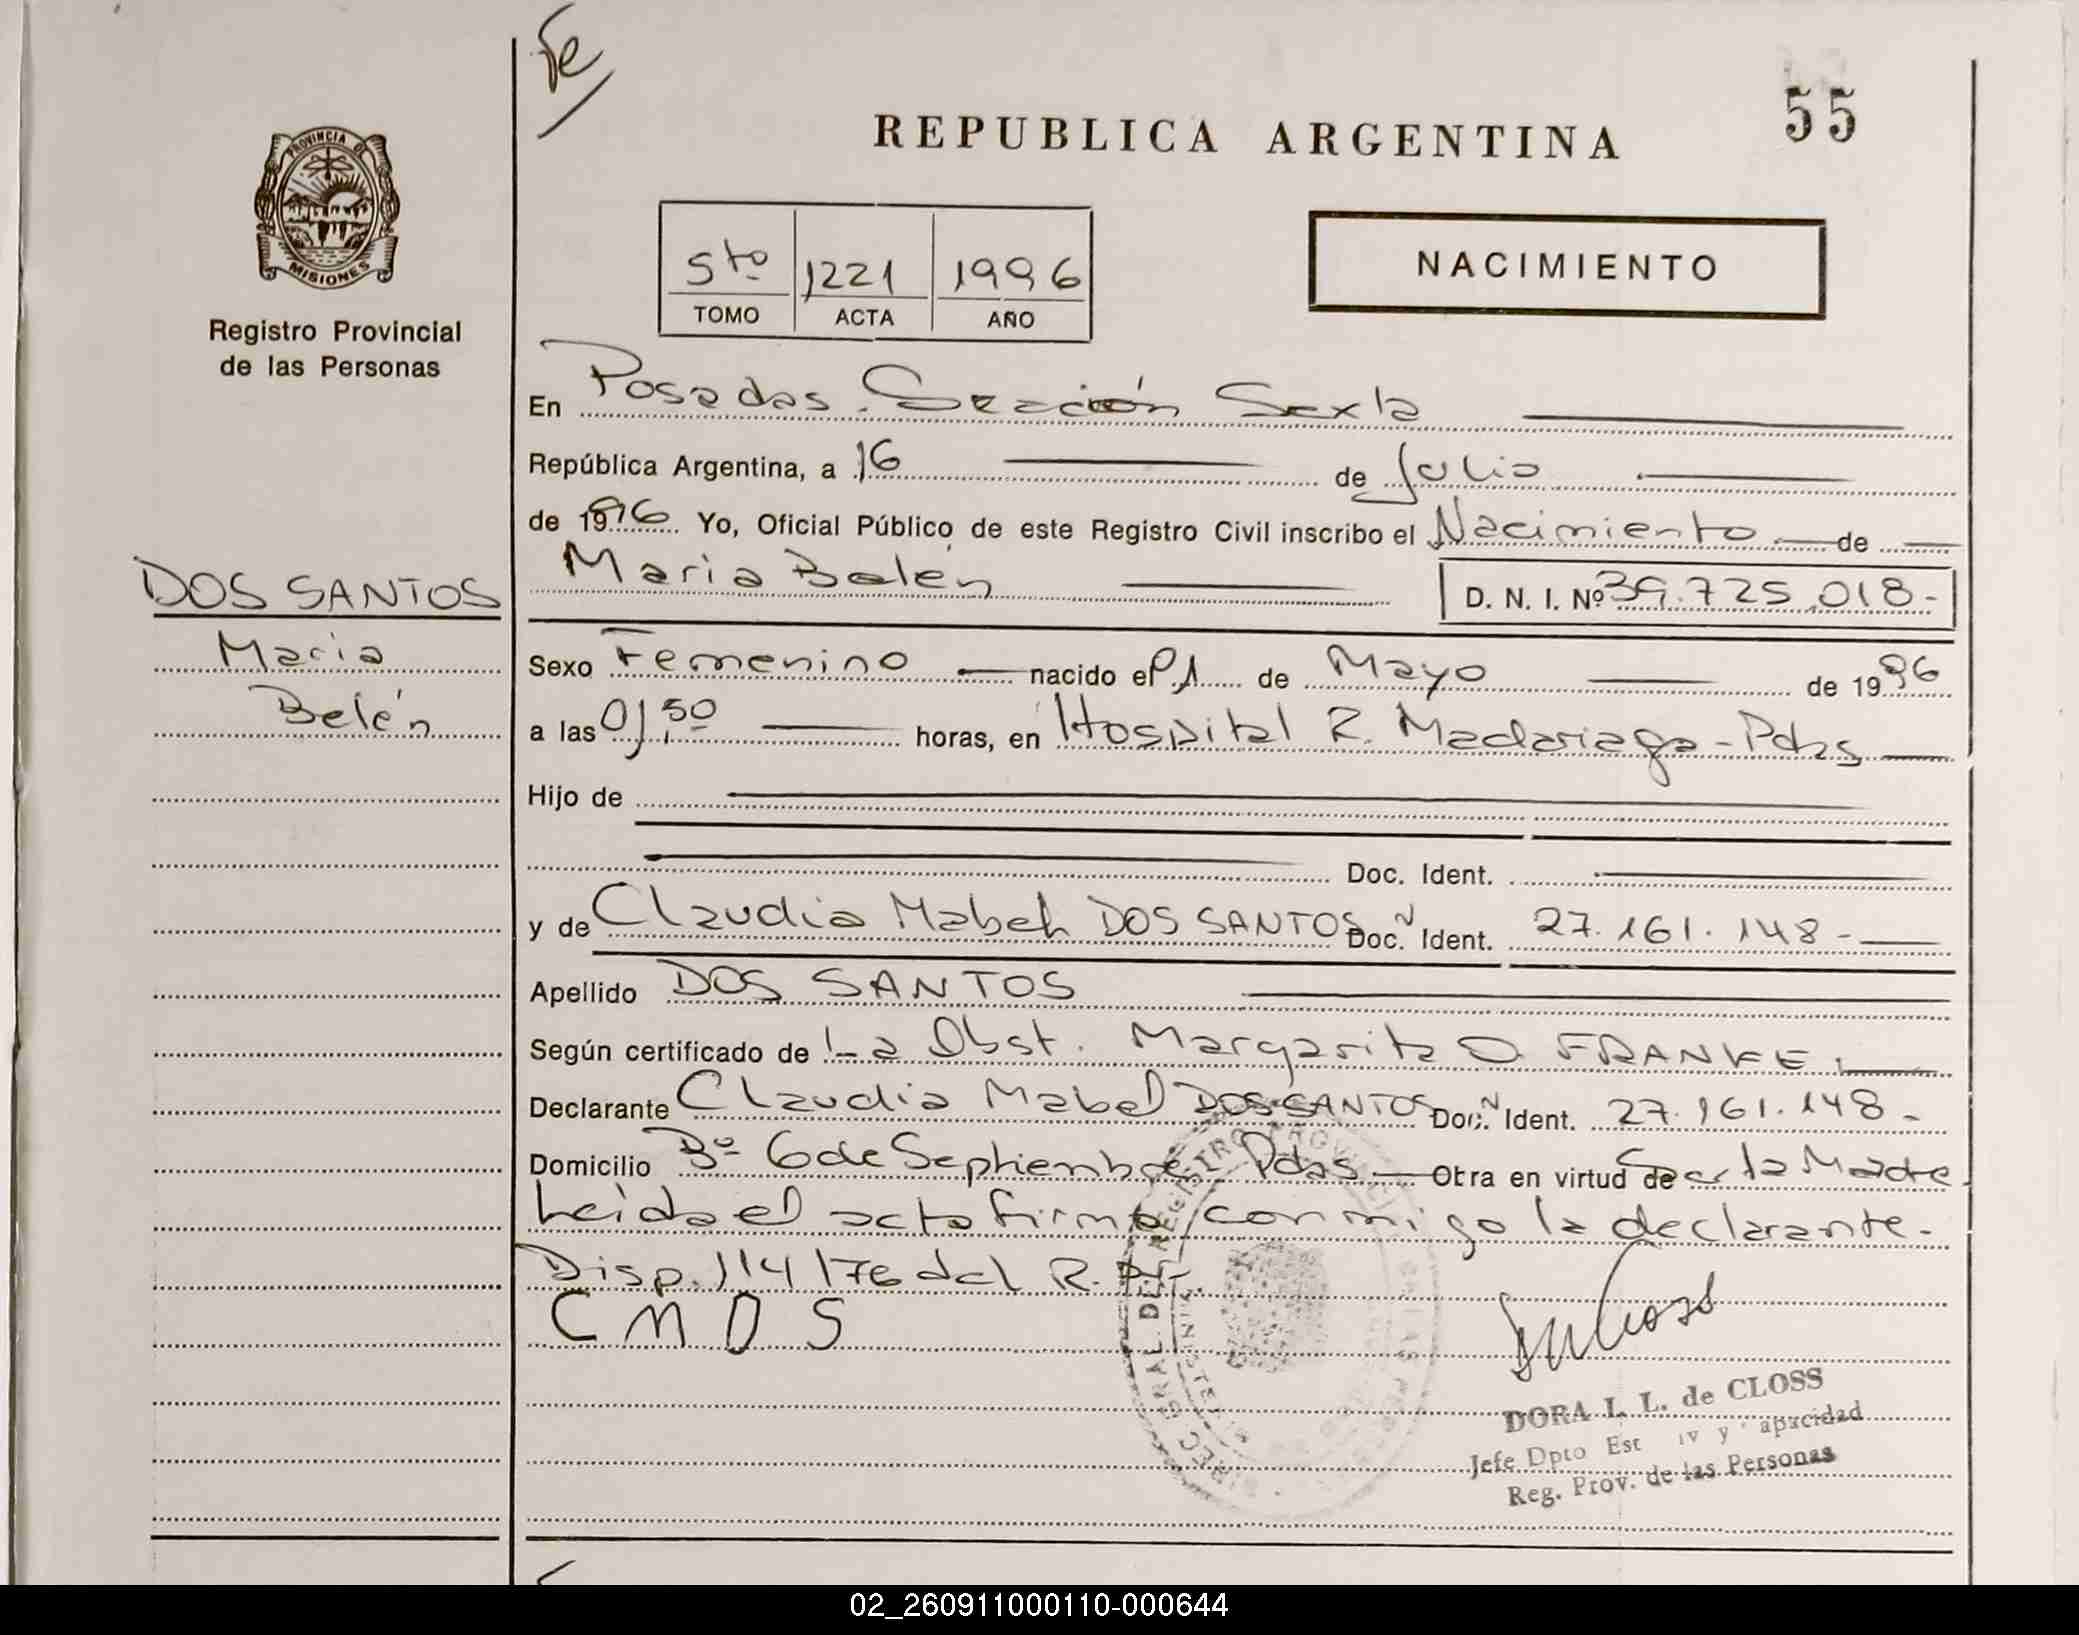 Fe
55
REPUBLICA ARGENTINA
PROVINCIA DE
MISIONES
Registro Provincial
de las Personas
5to 1221 1996
TOMO ACTA AÑO
NACIMIENTO
En Posadas. Sección Sexta
República Argentina, a 16 de Julio
de 1996 Yo, Oficial Público de este Registro Civil inscribo el Nacimiento de
Maria Belén D. N. I. Nº 39.725.018-
DOS SANTOS
Maria
Belén
Sexo Femenino nacido el 01 de Mayo de 1996
a las 01,50 horas, en Hospital R. Madariaga - Pdas
Hijo de
Doc. Ident.
y de Claudia Mabel DOS SANTOS Doc. Ident. 27.161.148-
Apellido DOS SANTOS
Según certificado de La Obst. Margarita O. FRANKE.
Declarante Claudia Mabel DOS SANTOS Doc. Ident. 27.161.148-
Domicilio Bº 6 de Septiembre Pdas Obra en virtud de Ser la Madre.
Leida el acta firma conmigo la declarante.
Disp. 114/76 del R.P.P.
C M D S
DORA I. L. de CLOSS
Jefe Dpto Est iv y apacidad
Reg. Prov. de las Personas
02_260911000110-000644